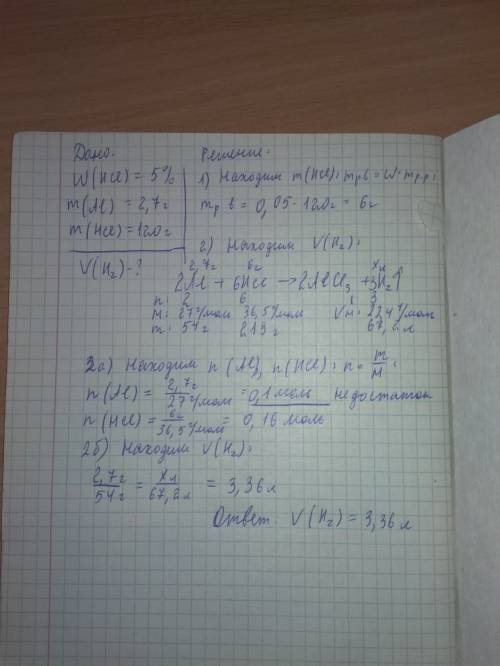 Дано:
W(HCl) = 5%
m(Al) = 2,7г
m(HCl) = 120г
V(H₂) - ?
Решение:
1) Находим m(HCl): mр.в = W · mр-р:
mр.в = 0,05 · 120г = 6г
2) Находим V(H₂):
2,7г 6г xл
2Al + 6HCl → 2AlCl₃ + 3H₂↑
n: 2 6 3
M: 27г/моль 36,5г/моль Vм: 22,4л/моль
m: 54г 219г 67,2л
2а) Находим n(Al), n(HCl): n = m/M:
n(Al) = 2,7г/27г/моль = 0,1моль недостаток
n(HCl) = 6г/36,5г/моль = 0,16 моль
2б) Находим V(H₂):
2,7г/54г = xл/67,2л = 3,36л
Ответ: V(H₂) = 3,36л